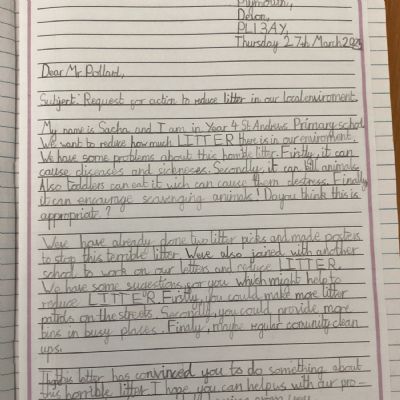 Plymouth,
Devon,
PL1 3AY,
Thursday 27th March 2025
Dear Mr Pollard,
Subject: Request for action to reduce litter in our local enviroment.
My name is Sacha and I am in Year 4 St Andrews Primary school
We want to reduce how much LITTER there is in our enviroment.
We have some problems about this horrible litter. Firstly, it can
cause diseases and sicknesses. Secondly, it can kill animals.
Also toddlers can eat it wich can cause them destress. Finally
it can encourage scavenging animals! Do you think this is
appropriate?
Weve have already done two litter picks and made posters
to stop this terrible litter. Weve also joined with another
school to work on our letters and reduce LITTER.
We have some suggestions for you which might help to
reduce LITTER. Firstly, you could make more litter
patrols on the streets. Secondly, you could provide more
bins in busy places. Finaly, maybe regular comunity clean
ups.
I this letter has convinced you to do something about
this horrible litter. I hope you can help us with our pro-